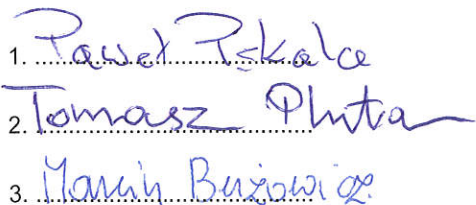 1. Paweł Pękala
2. Tomasz Pluta
3. Marcin Bużowicz